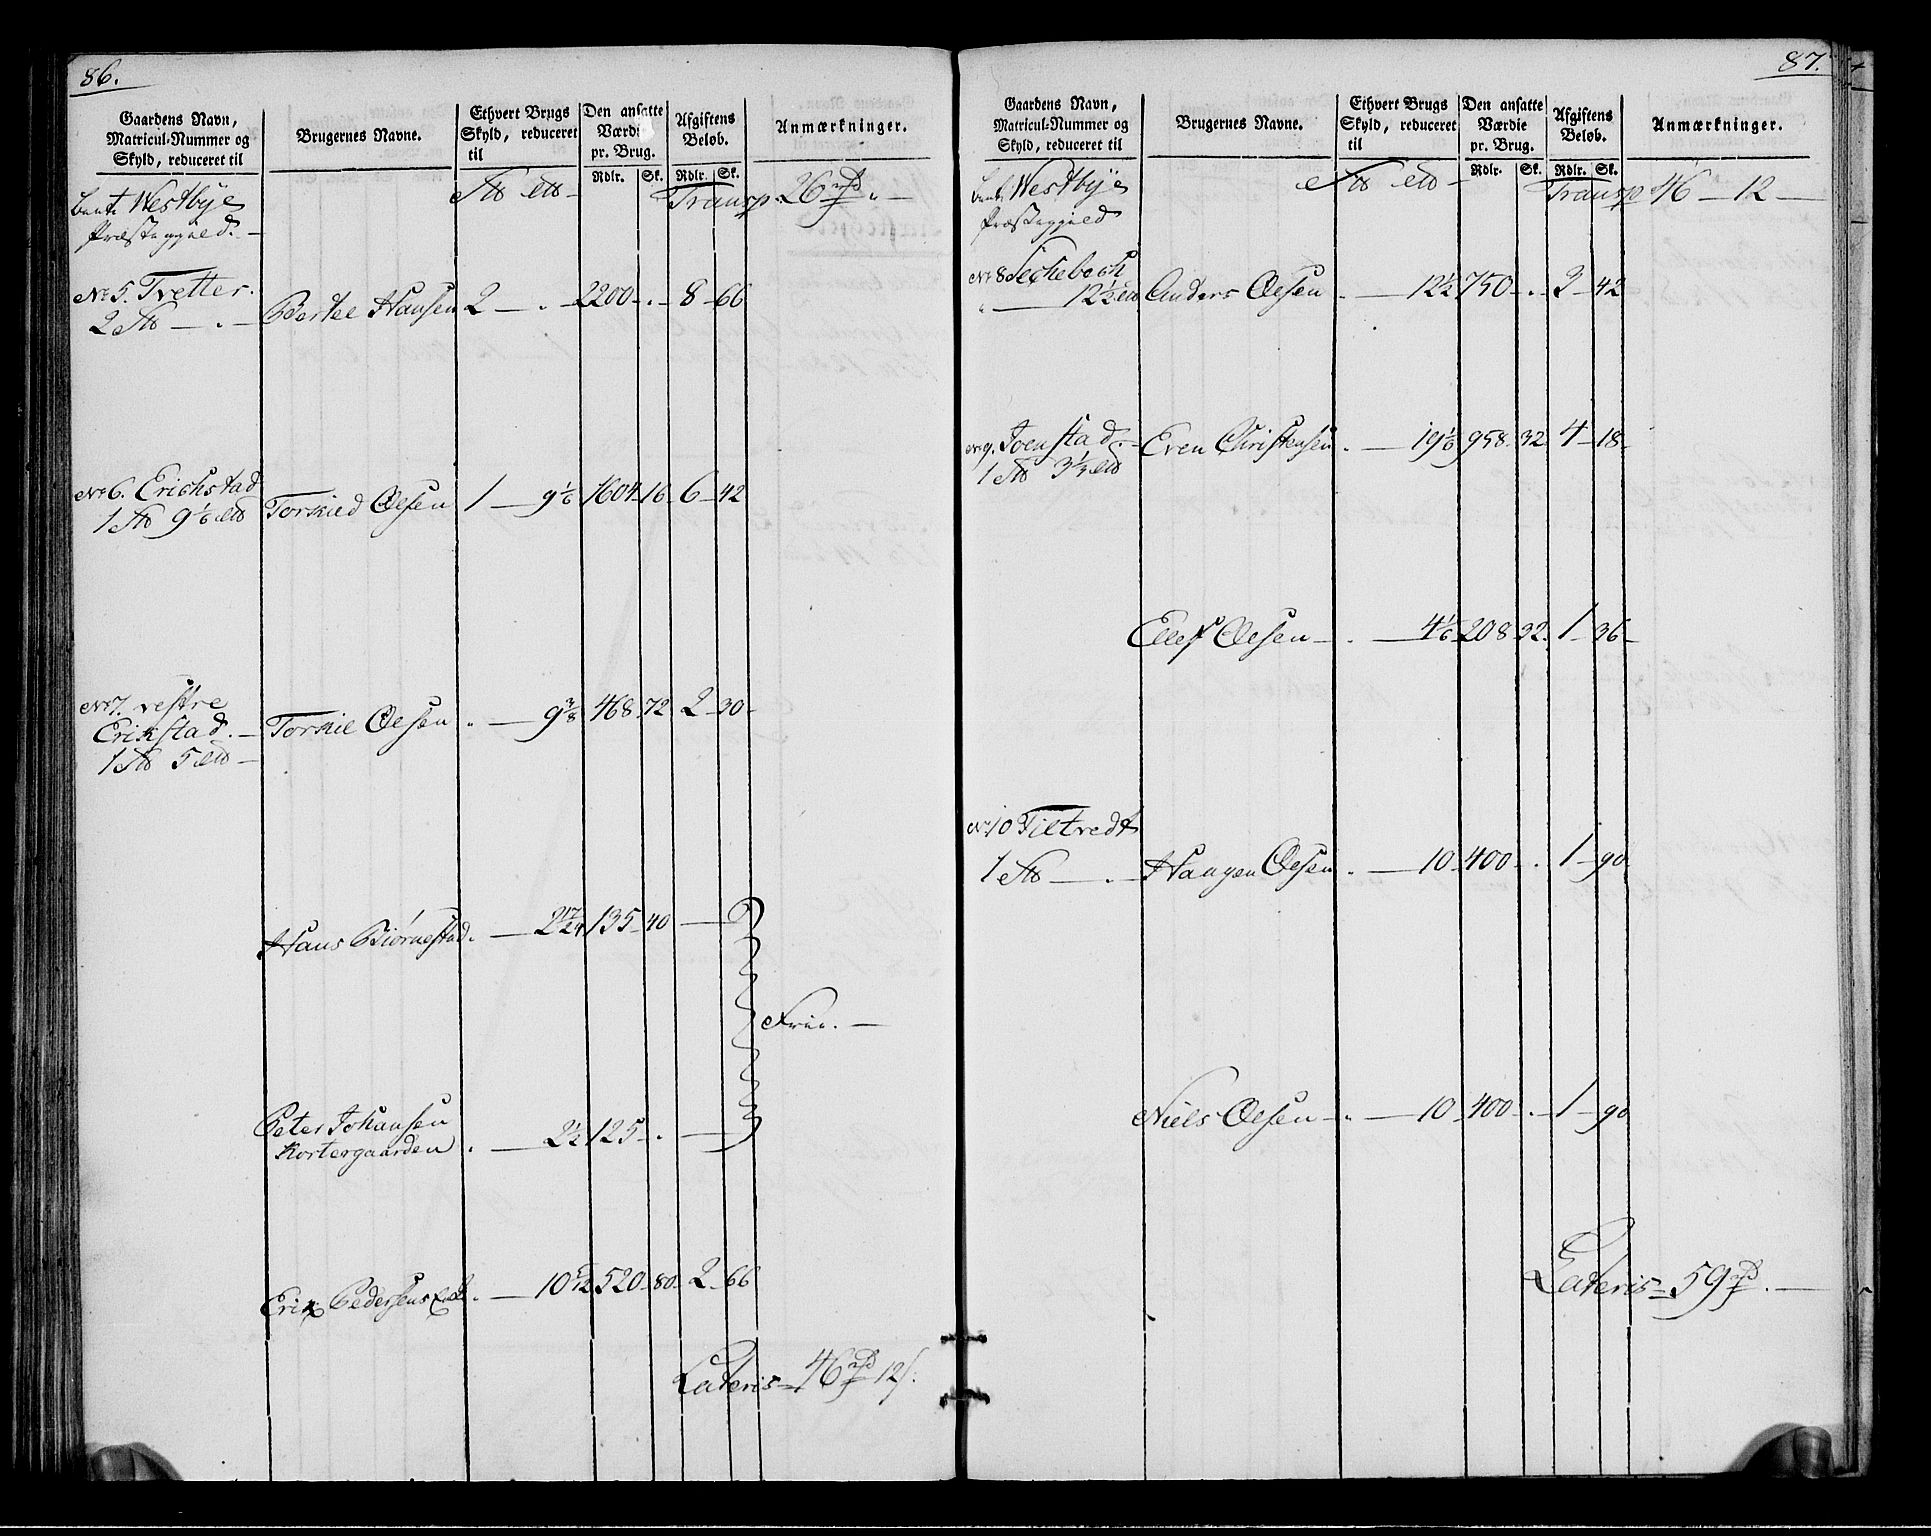 86.
Gaardens Navn,
Matricul-Nummer og
Skyld, reduceret til
Brugernes Navne.
Ethvert Brugs
Skyld, reduceret
til
Den ansatte
Værdie
pr. Brug.
Rdlr. Sk.
Afgiftens
Beløb.
Rdlr. Sk.
Anmærkninger.
Westbye
Præstegield.
Transp. 26 rd
No 5. Tvetter.
2
Bertel Hansen 2 2200 8 66
No 6. Erichstad
1 9 1/6
Torkild Olsen 1 9 1/6 1604 16 6 42
No 7. vestre
Erikstad.
1 5
Torkil Olsen 9 3/8 468 72 2 30
Hans Biørnestad. 2 17/24 135 40
Frie.
Peter Johansen
Kortergaarden 2 1/2 125
Erik Pedersens 10 5/12 520 80 2 66
Lateris 46 rd 12 s.
87.
Gaardens Navn,
Matricul-Nummer og
Skyld, reduceret til
Brugernes Navne.
Ethvert Brugs
Skyld, reduceret
til
Den ansatte
Værdie
pr. Brug.
Rdlr. Sk.
Afgiftens
Beløb.
Rdlr. Sk.
Anmærkninger.
Westbye
Præstegield
Transp 46 12
No 8
12 1/2
Anders Olsen 12 1/2 750 2 42
No 9. Joenstad.
1 3 1/3
Even Christensen 19 1/6 958 32 4 18
Ellef Olsen 4 1/6 208 32 1 36
No 10 Tiltvedt
1
Haagen Olsen 10 400 1 90
Niels Olsen 10 400 1 90
Lateris 59 rd.